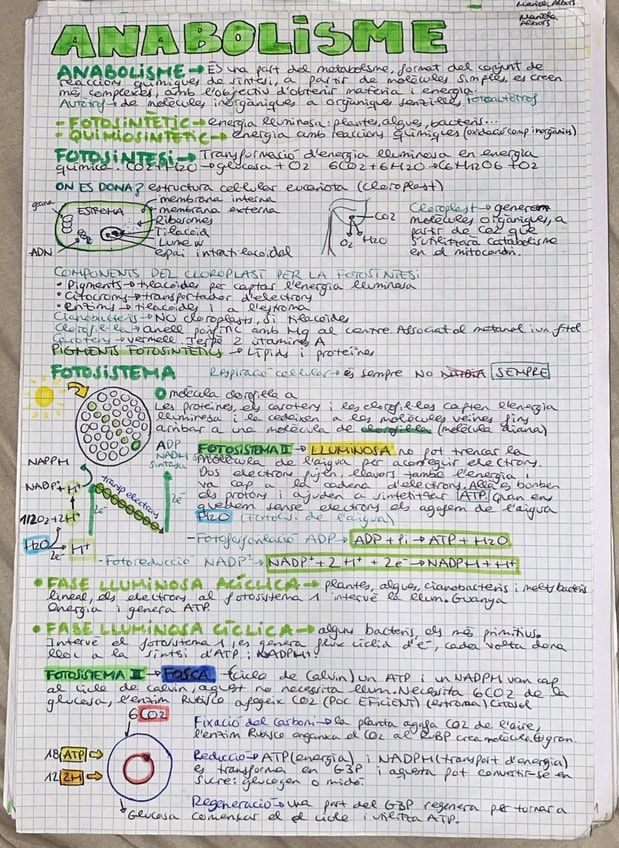 Mariela Albors
Mariela
Albors
ANABOLISME
ANABOLISME → És una part del metabolisme, format del conjunt de
reaccions químiques de síntesi, a partir de molècules simples, es creen
més complexes, amb l'objectiu d'obtenir matèria i energia.
de molècules inorgàniques a orgàniques senzilles, fotoautótros
- FOTOSINTÈTIC → energia lluminosa: plantes, algues, bacteris...
- QUIMIOSINTÈTIC → energia amb reaccions químiques (oxidació comp inorgànics)
FOTOSÍNTESI → Transformació d'energia lluminosa en energia
química. CO2 + H2O → glucosa + O2 6CO2 + 6H2O → C6H12O6 + O2
ON ES DONA? estructura cel·lular eucariota (cloroplast)
grana
ESTROMA
ADN
membrana interna
membrana externa
Ribosomes
Tilacoid
Lumen
espai intratilacoidal
CO2
O2 H2O
Cloroplast → generen
molècules orgàniques, a
partir de CO2 que
s'utilitzarà catabolisme
en el mitocondri.
COMPONENTS DEL CLOROPLAST PER LA FOTOSÍNTESI
• Pigments → tilacoides per captar l'energia lluminosa
• Citocroms → transportador d'electrons
• Enzims → tilacoides i a l'estroma
Cianobacteris → NO cloroplasts, si tilacoides
Clorofil·la → anell amb Mg al centre Associat al metanol i un fitol
Caroteny → vermell 2 vitamines A
PIGMENTS FOTOSINTÈTICS → Lípids i proteïnes
FOTOSISTEMA
Respiració cel·lular → és sempre NO SEMPRE
molècula clorofil·la a
Les proteïnes, els caroteny i les clorofil·les capten l'energia
lluminosa i la cedeixen a les molècules veïnes fins
arribar a una molècula de clorofil·la (molècula diana)
ADP
NADH
sintasa
NAPPH
NABP+ H+
1/2O2 + 2H+
H2O → H+
2e-
2e-
2e-
Transp electrons
FOTOSISTEMA II → LLUMINOSA no pot trencar la
molècula de l'aigua per aconseguir electrons.
Dos electrons fugen, llavors també l'energia i
va cap a la cadena d'electrons. Allà es bomben
els protons i ajuden a sintetitzar ATP. Quan ens
quedem sense electrons els agafem de l'aigua
H2O (Fotòlisi de l'aigua)
- Fotofosforilació ADP → ADP + Pi → ATP + H2O
- Fotoreducció NADP+ → NADP+ + 2H+ + 2e- → NADPH + H+
• FASE LLUMINOSA ACÍCLICA → plantes, algues, cianobacteris i molts bacteris
lineal, els electrons al fotosistema 1 intervé la llum. Guanya
Energia i genera ATP.
• FASE LLUMINOSA CÍCLICA → alguns bacteris, els més primitius.
Intervé el fotosistema I, es genera flux cíclic d'e-, cada volta dona
lloc a la síntesi d'ATP i NADPH.
FOTOSISTEMA II → FOSCA (cicle de Calvin) un ATP i un NADPH van cap
al cicle de calvin, aquest no necessita llum. Necesita 6CO2 de la
glucosa, l'enzim Rubisco afegeix CO2 (POC EFICIENT) (estroma) citosol
6 CO2
18 ATP →
12 2H →
Glucosa
Fixació del carboni → la planta agafa CO2 de l'aire,
l'enzim Rubisco enganxa el CO2 al RuBP crea molècula gran.
Reducció → ATP (energia) i NADPH (transport d'energia)
es transforma en G3P i aquesta pot convertir-se en
sucre: glucogen o midó.
Regeneració → una part del G3P regenera per tornar a
començar el cicle i utilitza ATP.